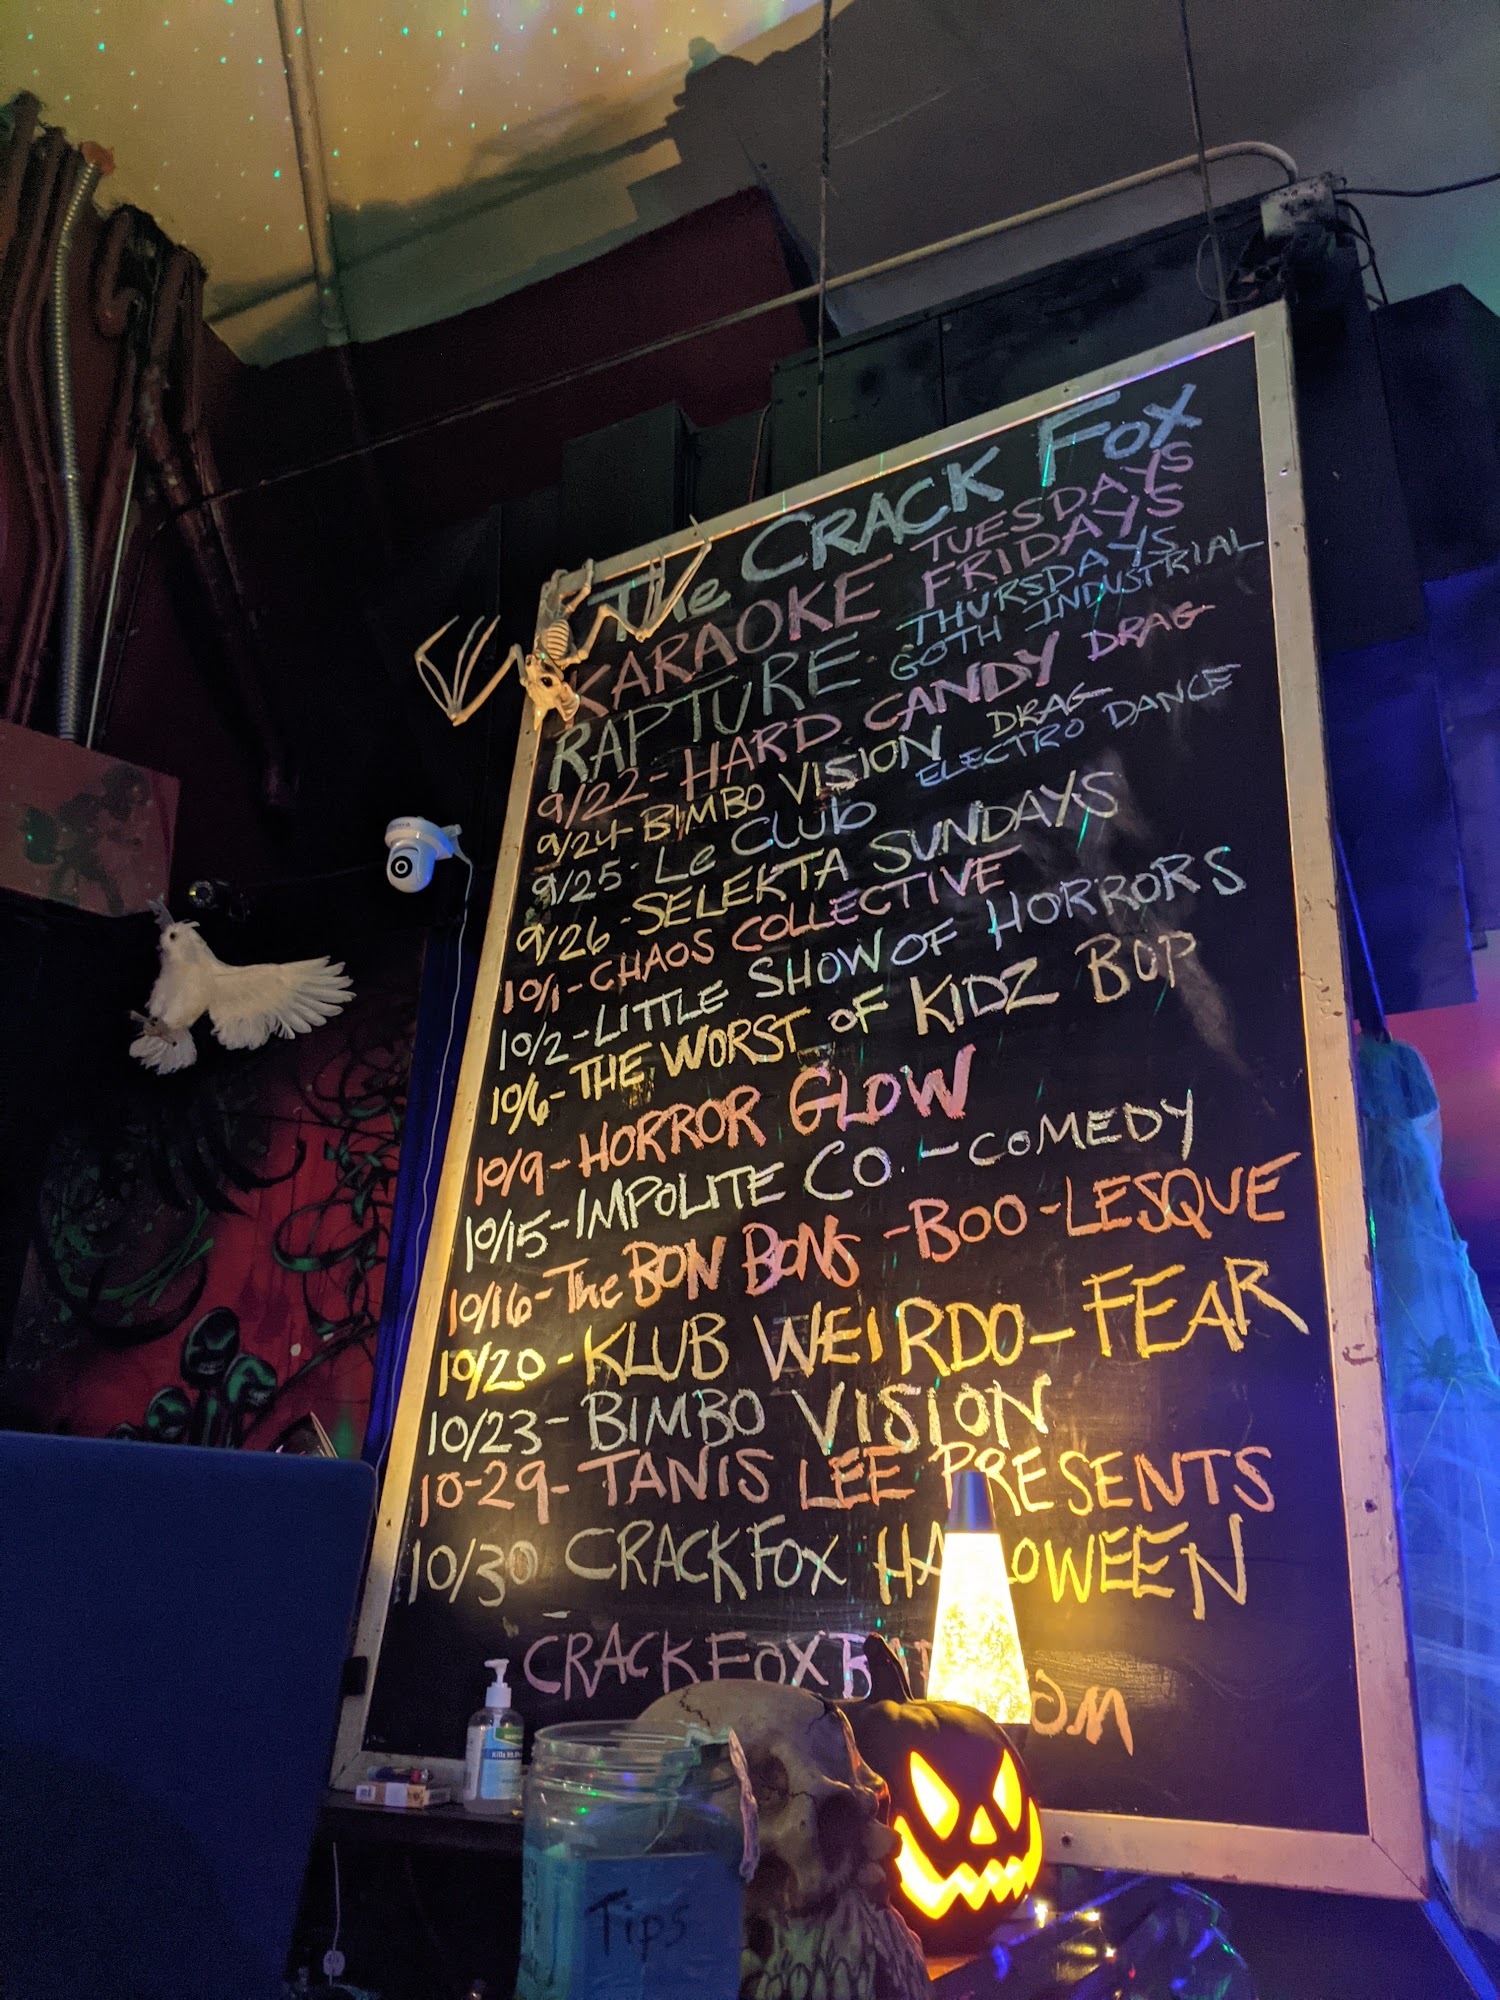 The CRACK FOX
KARAOKE TUESDAYS
FRIDAYS
RAPTURE THURSDAYS
GOTH INDUSTRIAL
9/22-HARD CANDY DRAG
9/24-BIMBO VISION DRAG
9/25-Le Club ELECTRO DANCE
9/26-SELEKTA SUNDAYS
10/1-CHAOS COLLECTIVE
10/2-LITTLE SHOW OF HORRORS
10/6-THE WORST OF KIDZ BOP
10/9-HORROR GLOW
10/15-IMPOLITE CO.-COMEDY
10/16-The BON BONS-BOO-LESQUE
10/20-KLUB WEIRDO-FEAR
10/23-BIMBO VISION
10-29-TANIS LEE PRESENTS
10/30 CRACKFOX HALLOWEEN
CRACKFOXB
OM
Tips